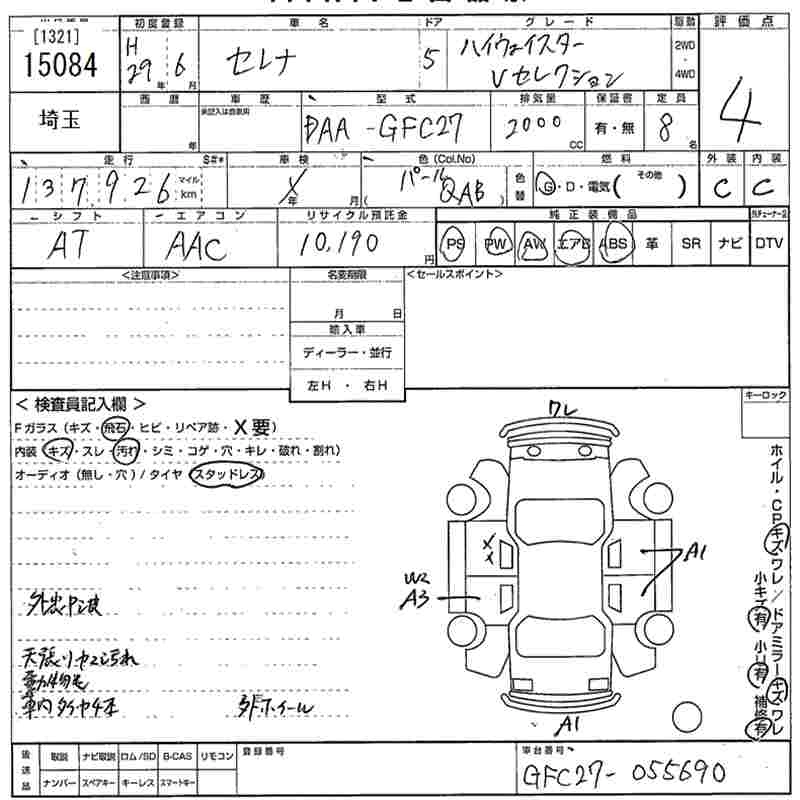 初度登録 車名 ドア グレード 駆動 評価点
[1321]
15084
H 29年 6月 セレナ 5 ハイウェイスター Vセレクション 2WD・4WD 4
埼玉
西暦 車歴 型式 排気量 保証書 定員
年 DAA-GFC27 2000 CC 有・無 8名
走行 S#* 車検 色(Col.No) 燃料 外装 内装
137,926 マイル km X年 月 パール (QAB) 色替 G・D・電気( その他 ) C C
シフト エアコン リサイクル預託金 純正装備品
AT AAC 10,190円 PS PW AW エアB ABS 革 SR ナビ DTV
<注意事項> 名変期限 <セールスポイント>
月 日
輸入車
ディーラー・並行
左H・右H
キーロック
<検査員記入欄>
Fガラス(キズ・飛石・ヒビ・リペア跡・X要)
内装(キズ・スレ・汚れ・シミ・コゲ・穴・キレ・破れ・割れ)
オーディオ(無し・穴)/タイヤ(スタッドレス)
ワレ
XX
A1
W2
A3
A1
天張りヤニ汚れ
車内タイヤ4本
ホイール・CPキズ・ワレ/ドアミラーキズ・ワレ
小キズ有 小凹有 補修有
後送品 取説 ナビ取説 ロム/SD B-CAS リモコン 登録番号 車台番号
ナンバー スペアキー キーレス スマートキー GFC27-055690